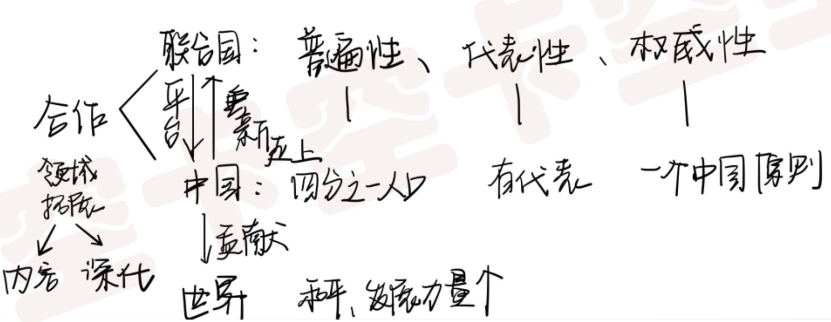 联合国：普遍性、代表性、权威性
合作
平台
重新
应上
中国：四分之一人口 有代表 一个中国原则
领域
拓展
贡献
内容 深化
世界 和平、发展力量个